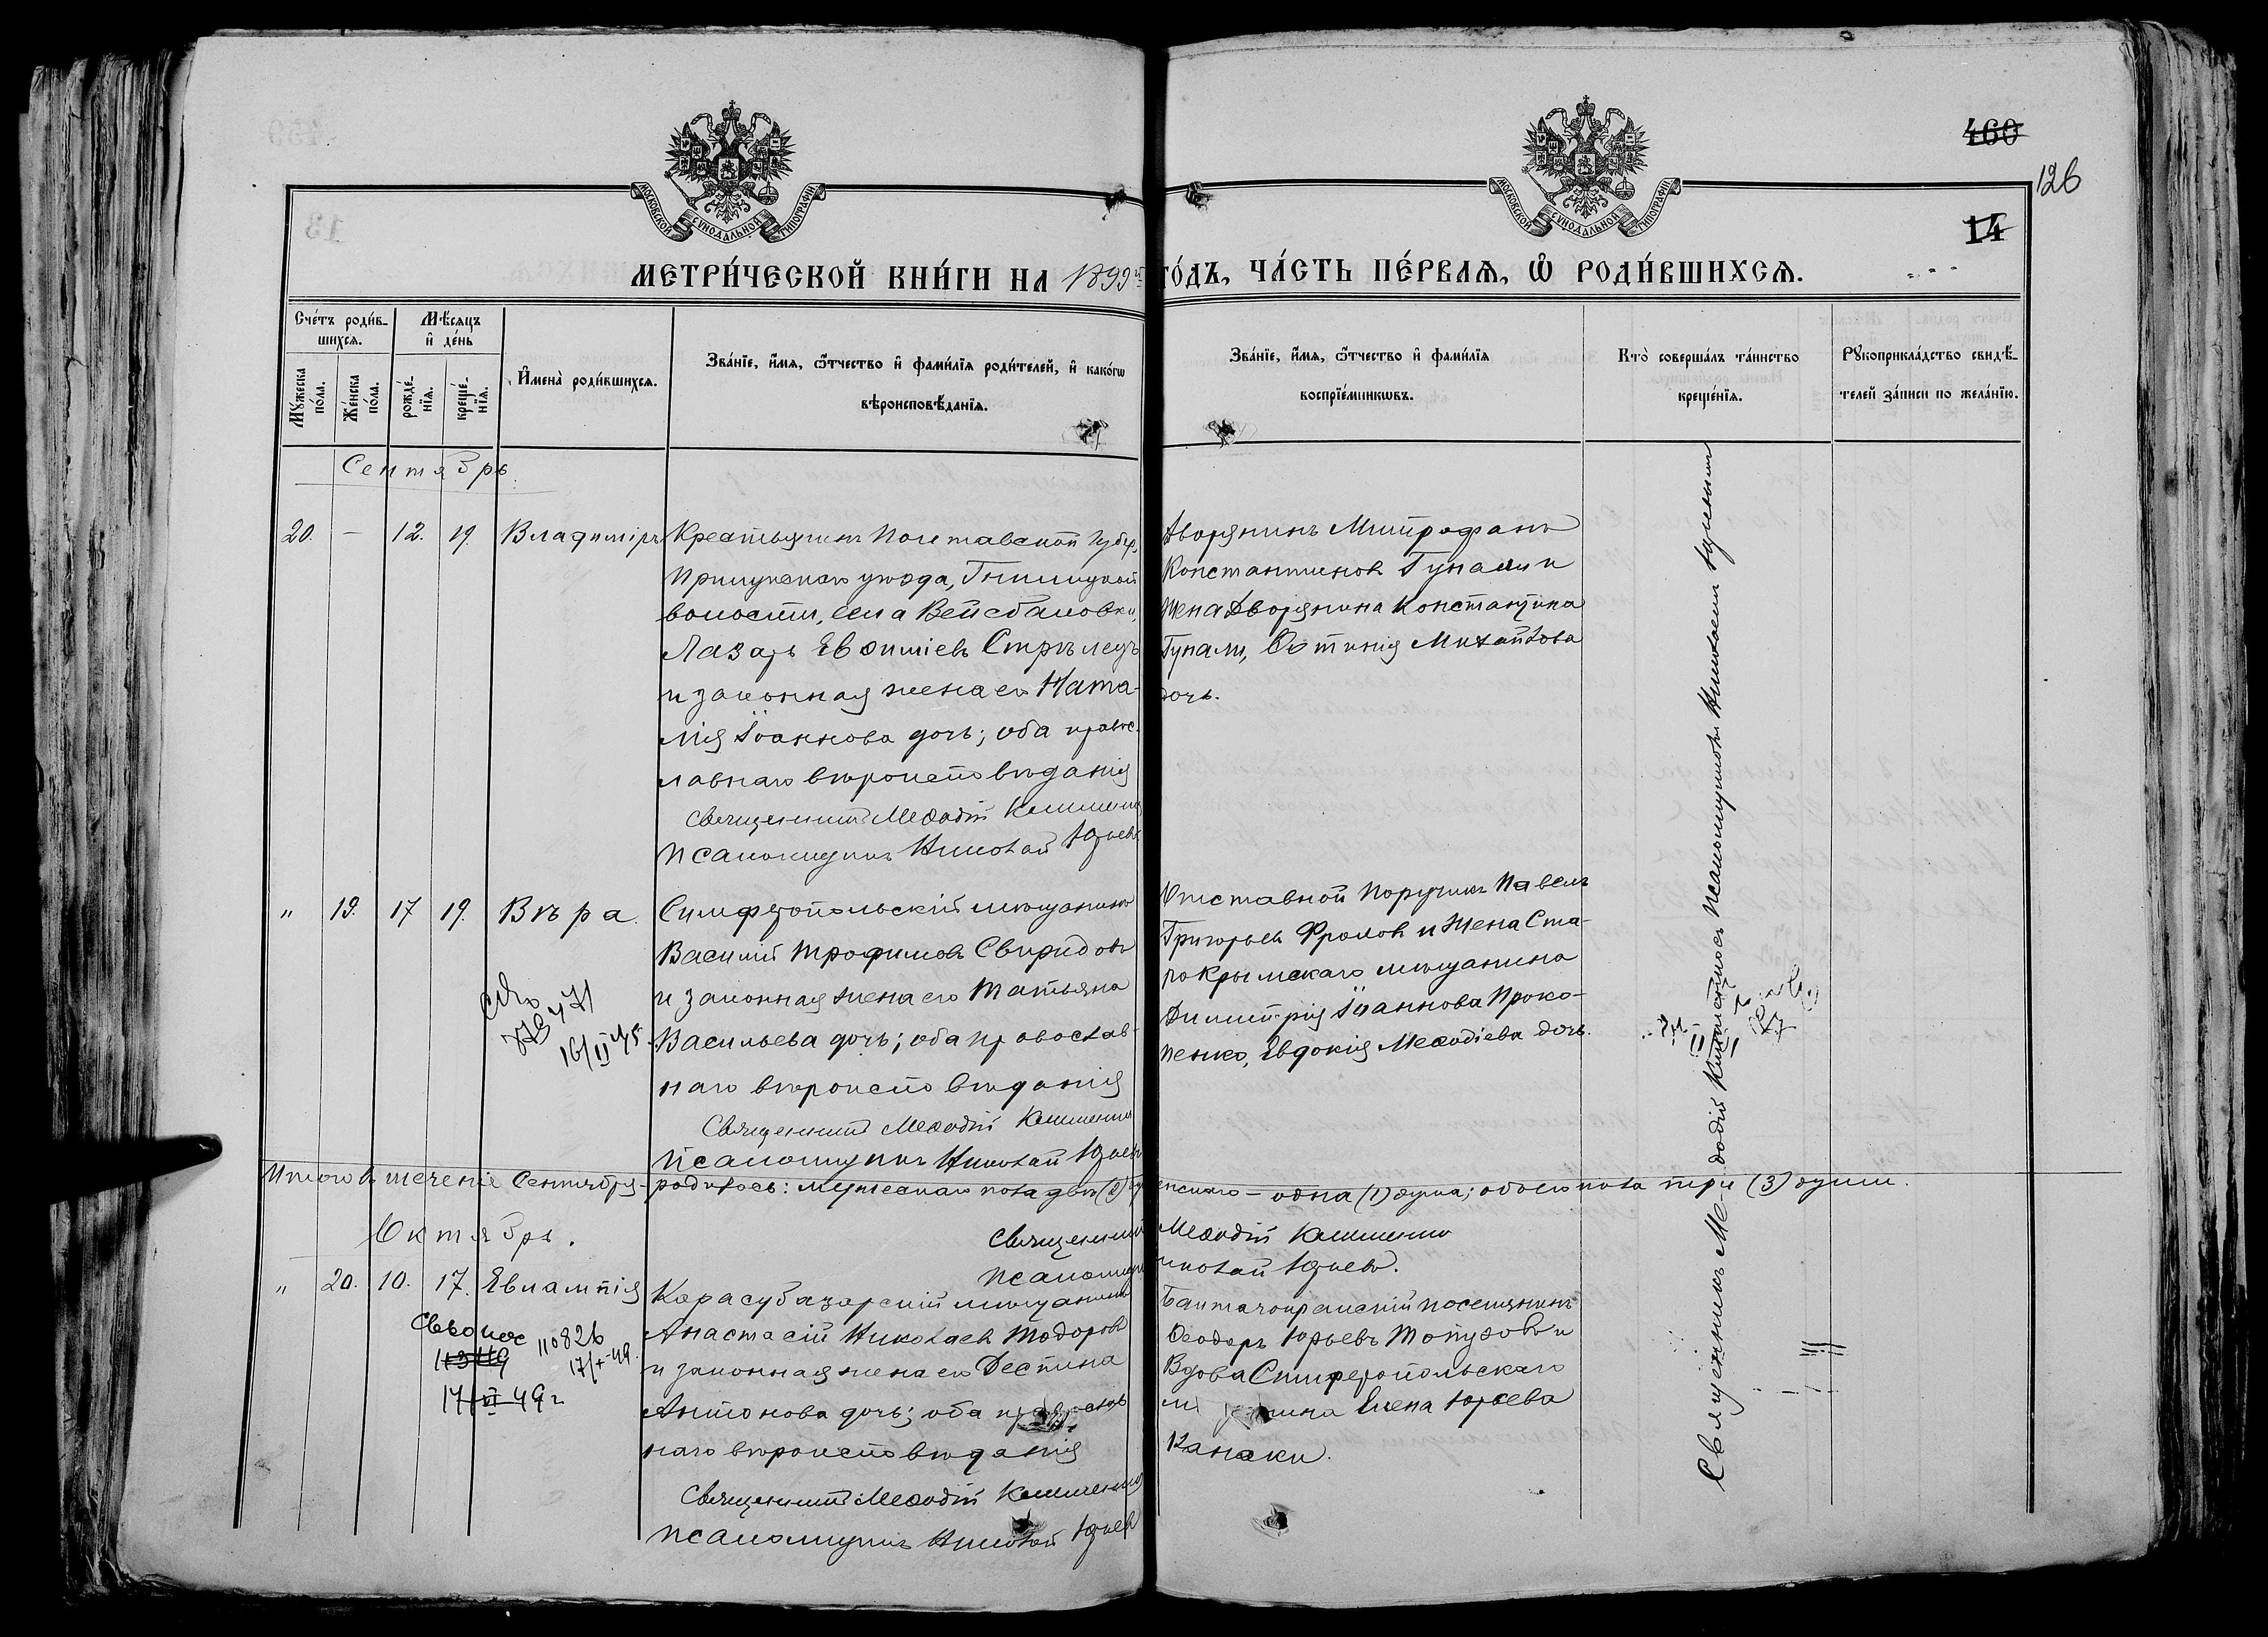 460
126
14
МОСКОВСКОЙ СѴНОДАЛЬНОЙ ТИПОГРАФІИ
МОСКОВСКОЙ СѴНОДАЛЬНОЙ ТИПОГРАФІИ
МЕТРИ́ЧЕСКОЙ КНИ́ГИ НА 1899й ГО́ДЪ, ЧА́СТЬ ПЕ́РВАѦ, Ѡ҆ РОДИ́ВШИХСѦ.
Сче́тъ роди́в-
шихсѧ.
Мꙋ́жеска по́ла.
Же́нска по́ла.
Мѣ́сѧцъ
и҆ де́нь
рожде́-
нїѧ.
креще́-
нїѧ.
И҆мена̀ роди́вшихсѧ.
Зва́нїе, и҆́мѧ, ѻ҆́тчество и҆ фамѝлїѧ роди́телей, и҆ како́гѡ
вѣроисповѣ́данїѧ.
Зва́нїе, и҆́мѧ, ѻ҆́тчество и҆ фами́лїѧ
воспрїе́мникѡвъ.
Кто̀ соверша́лъ та́инство
креще́нїѧ.
Рꙋкоприкла́дство свидѣ́-
телей за́писи по жела́нїю.
Сентябрь.
20. – 12. 19. Владиміръ
Крестьянинъ Полтавской губер.
Прилукскаго уѣзда, Гнилицкой
волости, села Вейсбаховки,
Лазарь Евѳиміевъ Стрѣлецъ
и законная жена его Ната-
лія Іоаннова дочь; оба правос-
лавнаго вѣроисповѣданія
Священникъ Меѳодій
Псаломщикъ Николай Юрьевъ
Дворянинъ Митрофанъ
Константиновъ Гупали и
жена Дворянина Константина
Гупали, Фотинія Михайлова
дочь.
" 19. 17 19. Вѣра.
Симферопольскій мѣщанинъ
Василій Трофимовъ Свиридовъ
и законная жена его Татьяна
Васильева дочь; оба православ-
наго вѣроисповѣданія
Священникъ Меѳодій
Псаломщикъ Николай Юрьевъ
Отставной Поручикъ Павелъ
Григорьевъ Фроловъ и жена Ста-
рокрымскаго мѣщанина
Димитрія Іоаннова Проко-
пенко, Евдокія Меѳодіева дочь.
16/II 45
Итого въ теченіе Сентября родилось: мужескаго пола два (2) женскаго – одна (1) душа; обоего пола три (3) души.
Священникъ Меѳодій
Псаломщикъ Николай Юрьевъ.
Октябрь.
" 20. 10. 17. Евлампія
Карасубазарскій мѣщанинъ
Анастасій Николаевъ Тодоровъ
и законная жена его Деспина
Антонова дочь; оба православ-
наго вѣроисповѣданія
Священникъ Меѳодій
Псаломщикъ Николай Юрьевъ
110826
17/X-49
17/VI 49г
посемянинъ
Ѳеодоръ Юрьевъ Топузовъ и
Вдова Симферопольскаго
Елена Юрьева
Канаки.
Священникъ Меѳодій съ Псаломщикомъ Николаемъ